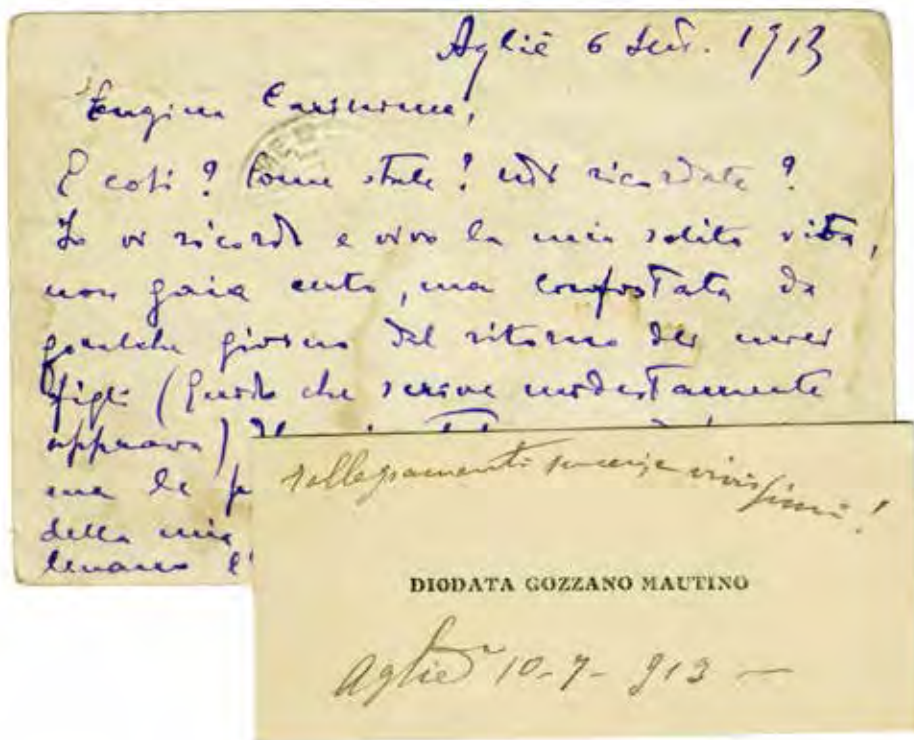 Agliè 6 Sett. 1913
Eugina Carissima,
E così? Come state? mi ricordate?
Io vi ricordo e vivo la mia solita vita,
non gaia certo, ma confortata da
qualche giorno dal ritorno dei miei
figli (Guido che scrive modestamente
approva)
ma le
della mia
rallegramenti sinceri e vivissimi!
DIODATA GOZZANO MAUTINO
Agliè 10-7-913 —